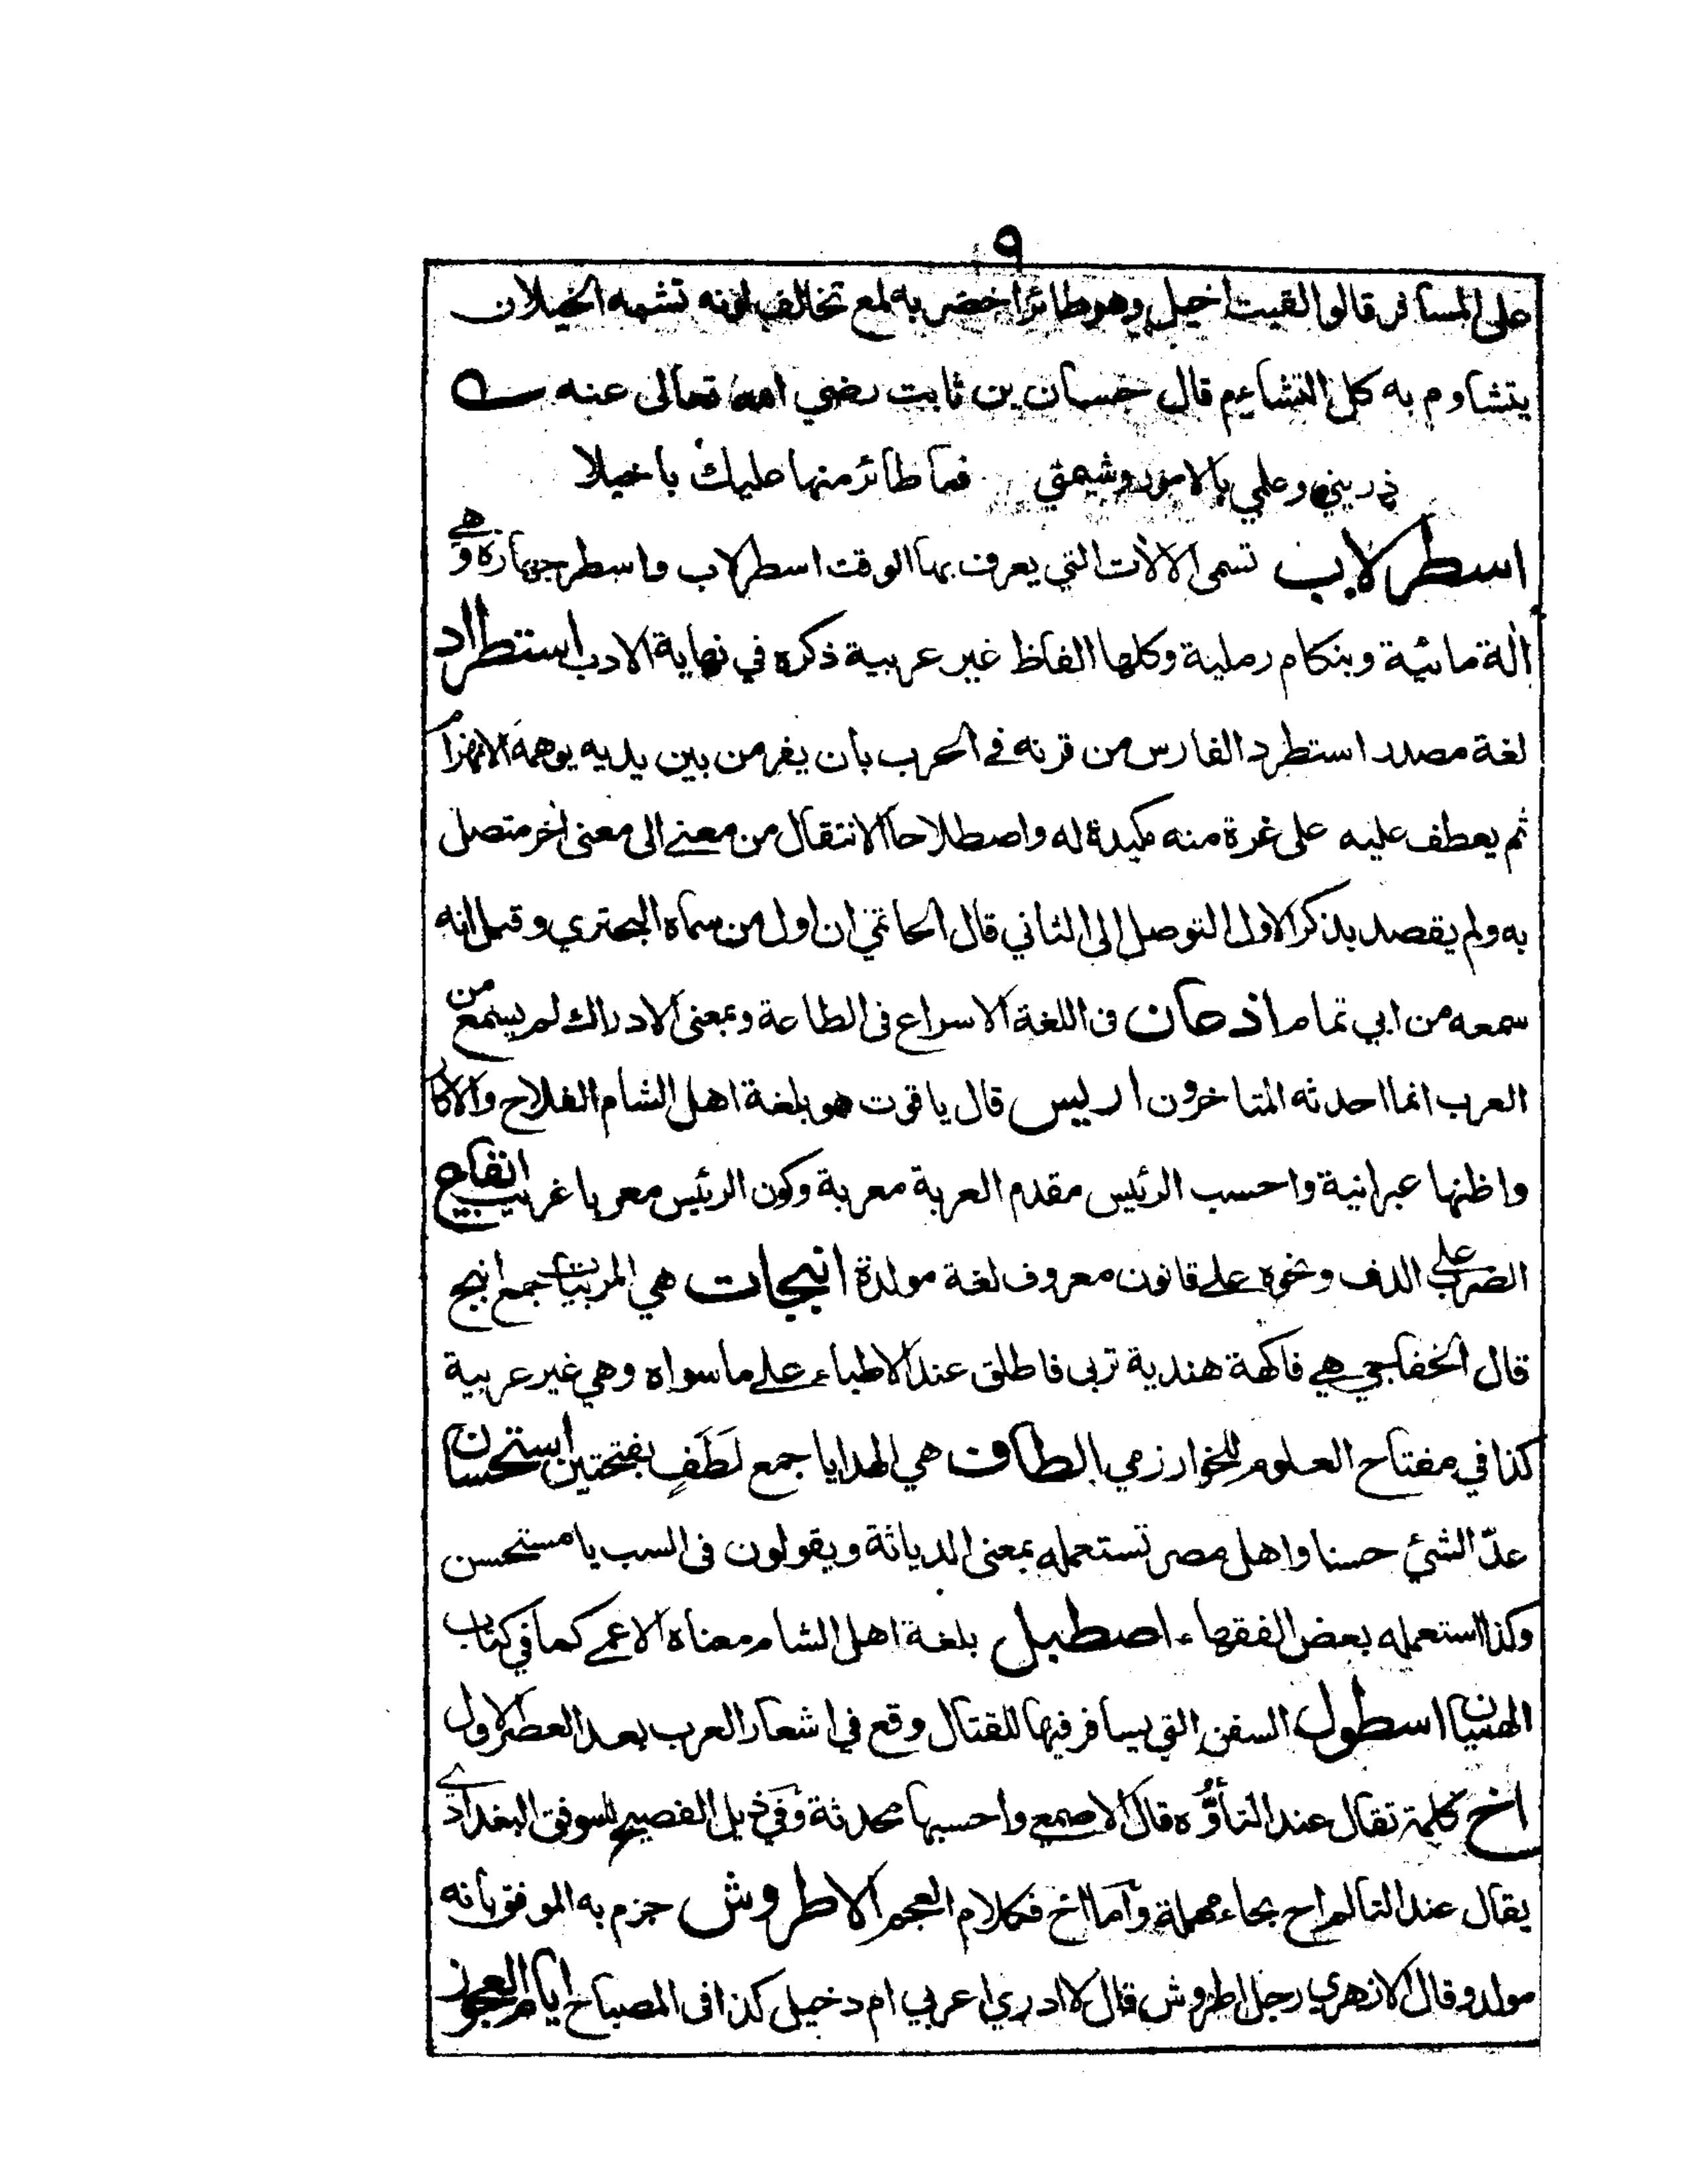 ٩
على المسافر قالوا لقيت اخيل وهو طائر اخضر به لمع تخالف لونه تشبه الخيلان
يتشاوم به كل التشاءم قال حسان بن ثابت رضي الله تعالى عنه
ذريني وعلمي بالامور وشيمتي فما طائر منها عليك باخيلا
اسطرلاب تسمى الالات التي يعرف بها الوقت اسطرلاب واسطرجهارة وهي
الة مائية وبنكام رملية وكلها الفاظ غير عربية ذكره في نهاية الادب استطراد
لغة مصدر استطرد الفارس من قرنه في الحرب بان يفر من بين يديه يوهمه الانهزام
ثم يعطف عليه على غرة منه مكيدة له واصطلاحا الانتقال من معنى الى معنى اخر متصل
به ولم يقصد بذكر الاول التوصل الى الثاني قال الحاتمي ان اول من سماه البحتري وقيل انه
سمعه من ابي تمام اذعان في اللغة الاسراع في الطاعة وبمعنى الادراك لم يسمع من
العرب انما احدثه المتاخرون اريس قال ياقوت هو بلغة اهل الشام الفلاح والاكار
واظنها عبرانية واحسب الرئيس مقدم القرية معربة وكون الرئيس معربا غريب
الضرب على الدف ونحوه على قانون معروف لغة مولدة انبجات هي المربيات جمع انبج
قال الخفاجي هي فاكهة هندية تربى فاطلق عند الاطباء على ما سواه وهي غير عربية
كذا في مفتاح العلوم للخوارزمي الطاف هي الهدايا جمع لَطَفٍ بفتحتين استحسان
عدّ الشئ حسنا واهل مصر تستعمله بمعنى الدياثة ويقولون في السب يا مستحسن
وكذا استعمله بعض الفقهاء اصطبل بلغة اهل الشام معناه الاعمى كما في كتاب
الهميان اسطول السفن التي يسافر فيها للقتال وقع في اشعار العرب بعد العصر الاول
اخ كلمة تقال عند التأوُّه قال الاصمعي واحسبها محدثة وفي ذيل الفصيح للموفق البغدادي
يقال عند التالم اح بحاء مهملة وأما اخ فكلام العجم الاطروش جزم به الموفق بانه
مولد وقال الازهري رجل اطروش قال لا ادري اعربي ام دخيل كذا في المصباح ايام العجوز